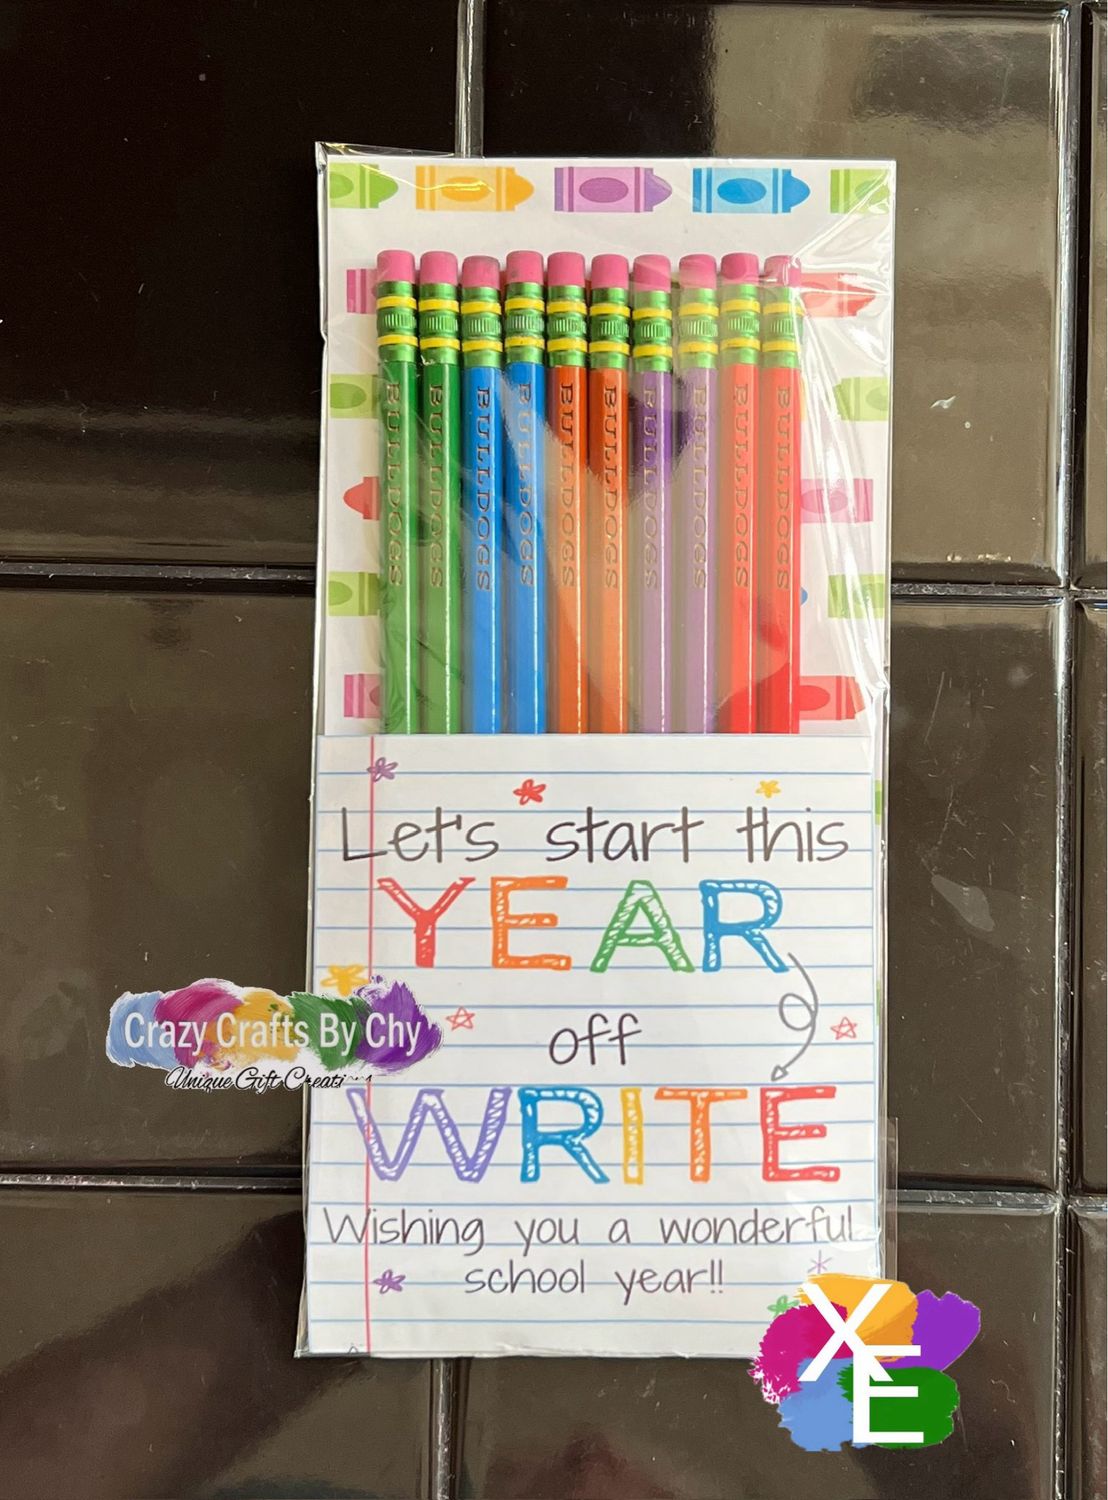 BULLDOGS BULLDOGS BULLDOGS BULLDOGS BULLDOGS BULLDOGS BULLDOGS BULLDOGS BULLDOGS BULLDOGS
Let's start this
YEAR
off
WRITE
Wishing you a wonderful
school year!!
Crazy Crafts By Chy
Unique Gift Creations
XE
E